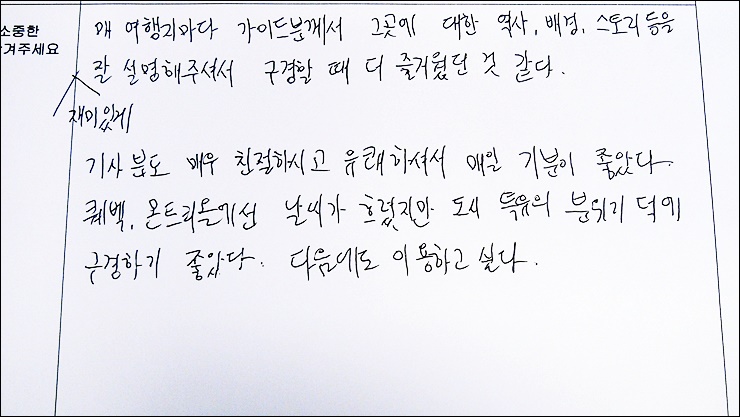 소중한
겨주세요
매 여행지마다 가이드분께서 그곳에 대한 역사, 배경, 스토리 등을
잘 설명해주셔서 구경할 때 더 즐거웠던 것 같다.
재미있게
기사분도 매우 친절하시고 유쾌하셔서 매일 기분이 좋았다.
퀘벡, 몬트리올에선 날씨가 흐렸지만 도시 특유의 분위기 덕에
구경하기 좋았당. 다음에도 이용하고 싶다.